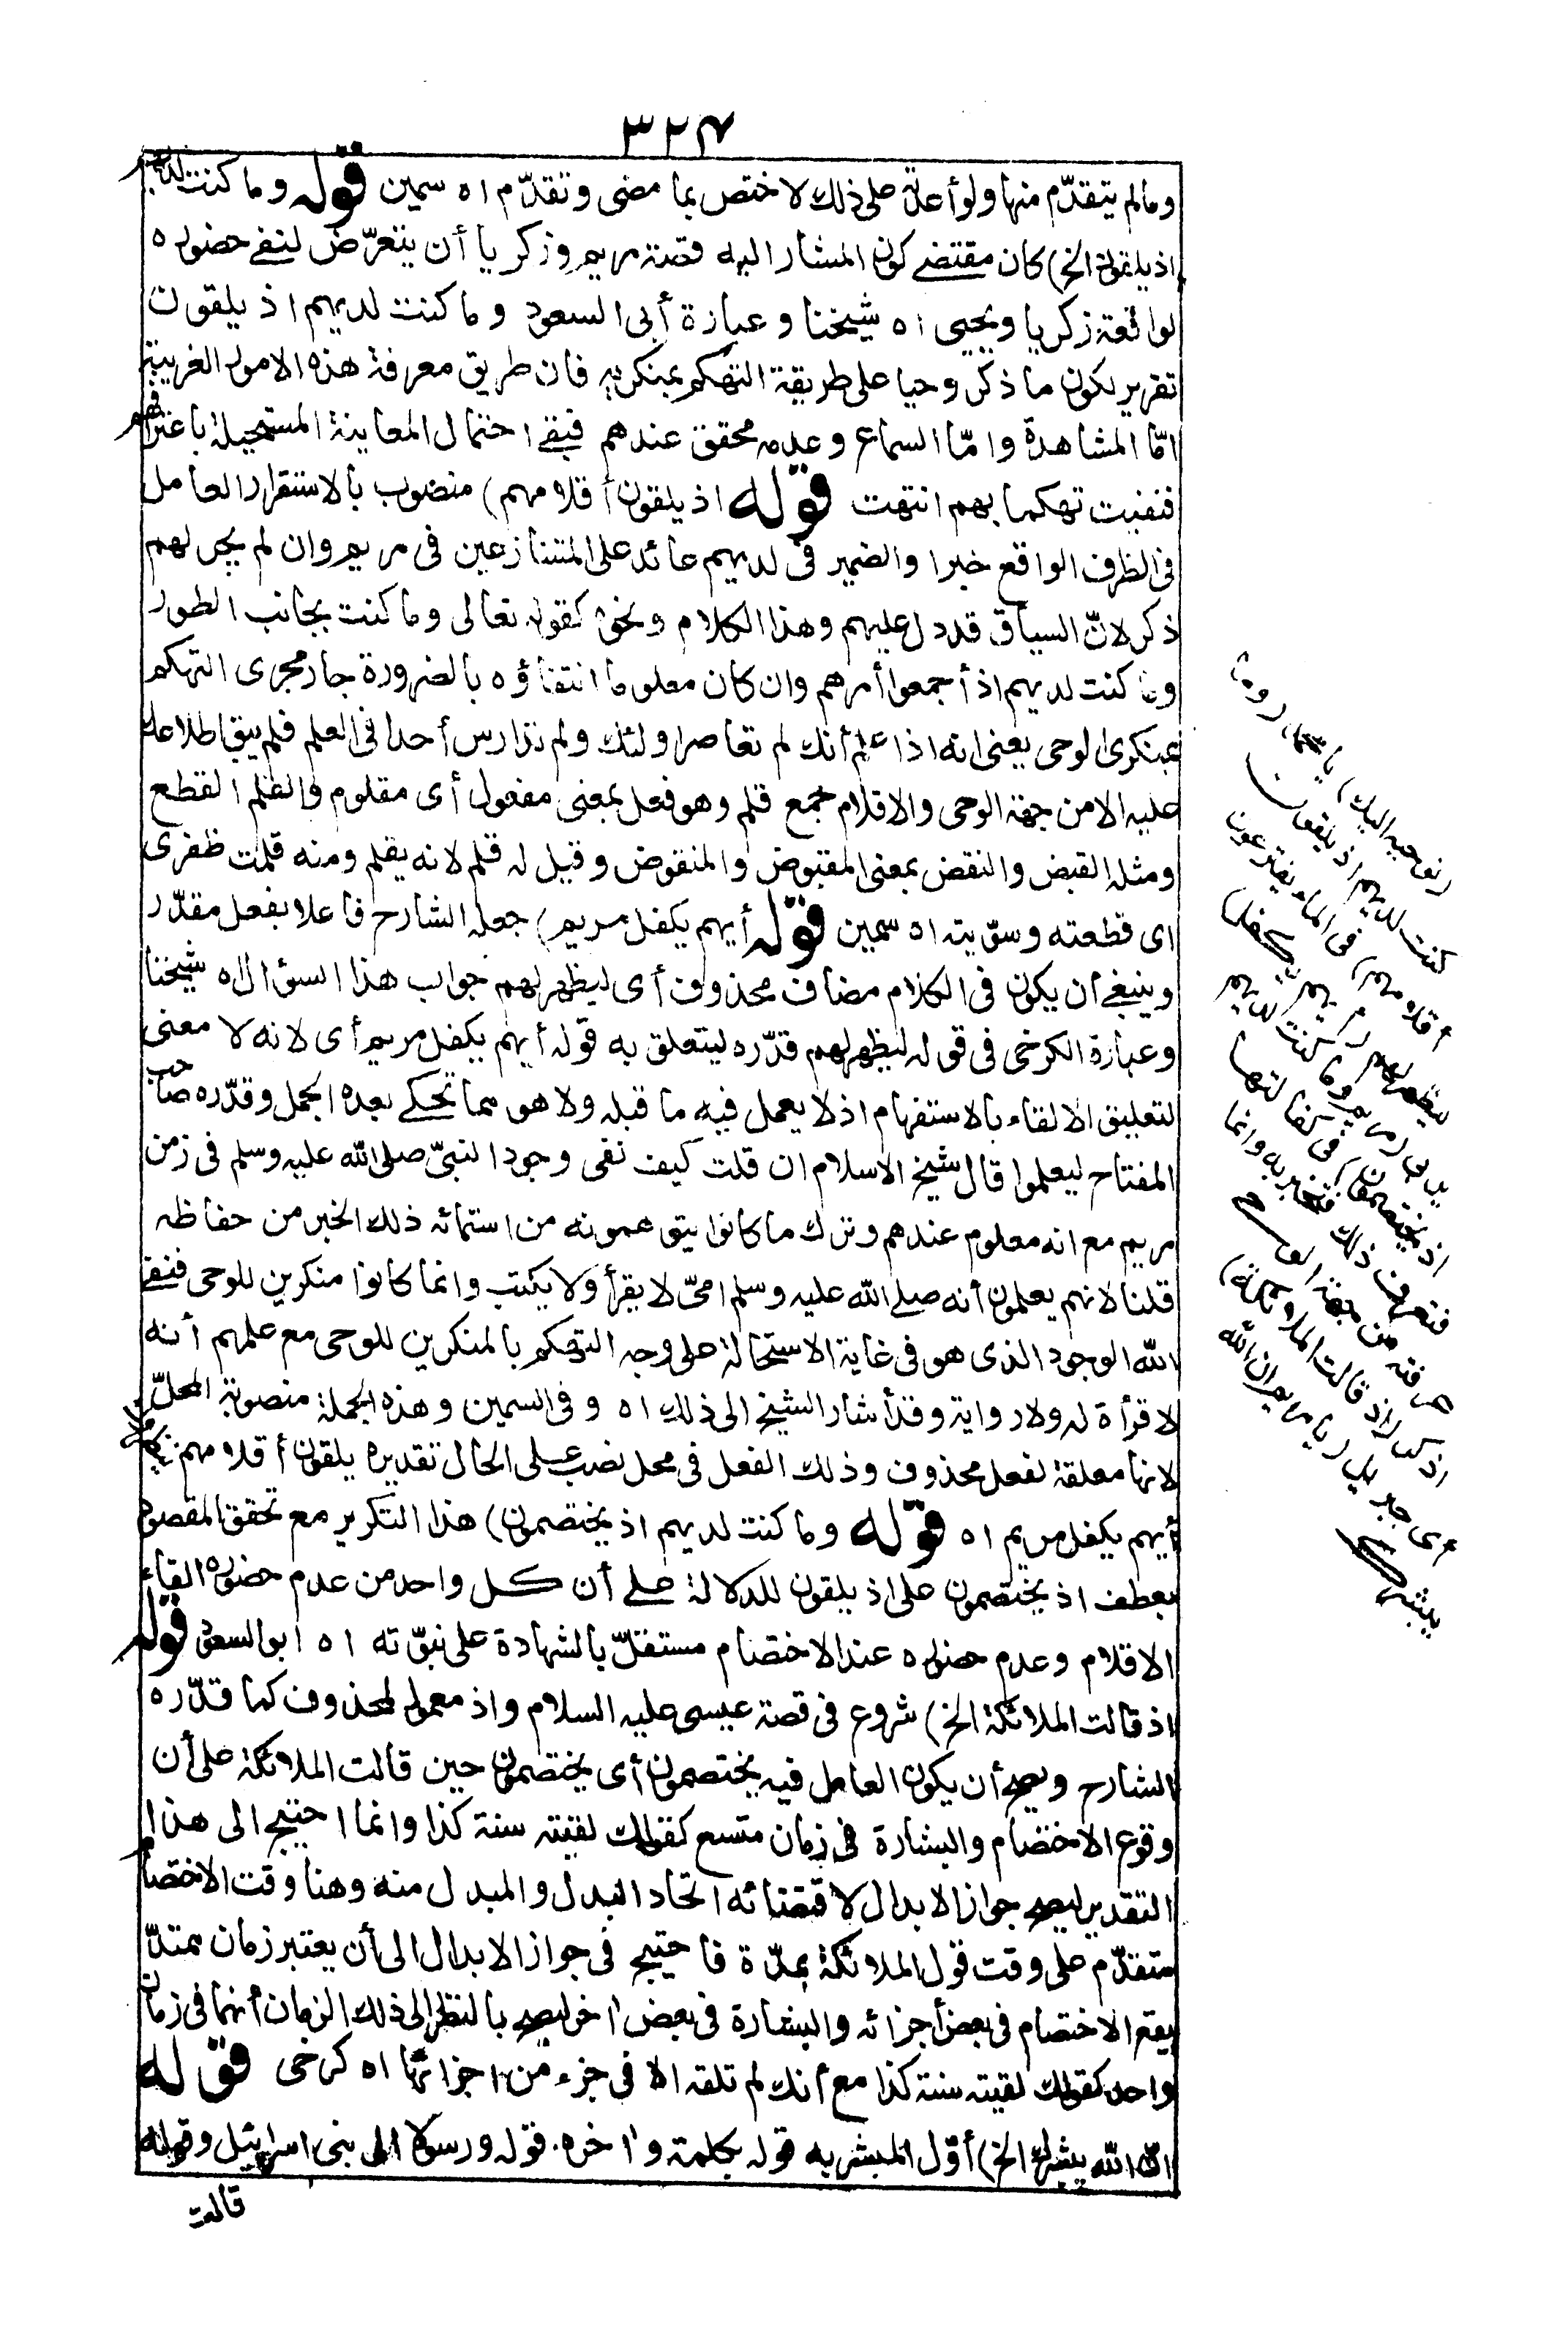 ٣٢٤
وما لم يتقدّم منها ولو أعدته على ذلك لاختص بما مضى وتقدّم اه سمين قوله وما كنت لديهم
اذ يلقون الخ) كان مقتضى كون المشار اليه قصة مريم وزكريا أن يتعرّض لنفى حضوره
لواقعة زكريا ويحيى اه شيخنا وعبارة أبى السعود وما كنت لديهم اذ يلقون
تقرير لكون ما ذكر وحيا على طريقة التهكم بمنكريه فان طريق معرفة هذه الامور الغريبة
امّا المشاهدة وامّا السماع وعدمه محقق عندهم فبقى احتمال المعاينة المستحيلة باعترافهم
فنفيت تهكما بهم انتهت قوله اذ يلقون أقلامهم) منصوب بالاستقرار العامل
فى الظرف الواقع خبرا والضمير فى لديهم عائد على المتنازعين فى مريم وان لم يجر لهم
ذكر لانّ السياق قد دل عليهم وهذا الكلام ونحوه كقوله تعالى وما كنت بجانب الطور
وما كنت لديهم اذ أجمعوا أمرهم وان كان معلوما انتفاؤه بالضرورة جار مجرى التهكم
بمنكرى الوحى يعنى انه اذا علم أنك لم تعاصر اولئك ولم تدارس أحدا فى العلم فلم يبق اطلاعك
عليه الا من جهة الوحى والاقلام جمع قلم وهو فعل بمعنى مفعول أى مقلوم والقلم القطع
ومثله القبض والنقض بمعنى المقبوض والمنقوض وقيل له قلم لانه يقلم ومنه قلمت ظفرى
اى قطعته وسوّيته اه سمين قوله أيهم يكفل مريم) جعله الشارح فاعلا بفعل مقدّر
وينبغى أن يكون فى الكلام مضاف محذوف أى ليظهر لهم جواب هذا السؤال اه شيخنا
وعبارة الكرخى فى قوله ليظهر لهم قدّره ليتعلق به قوله أيهم يكفل مريم أى لانه لا معنى
لتعليق الالقاء بالاستفهام اذ لا يعمل فيه ما قبله ولا هو مما تحكى بعده الجمل وقدّره صاحب
المفتاح ليعلموا قال شيخ الاسلام ان قلت كيف نفى وجود النبىّ صلى الله عليه وسلم فى زمن
مريم مع انه معلوم عندهم وترك ما كانوا يتوهمونه من استمائه ذلك الخبر من حفاظه
قلنا لانهم يعلمون أنه صلى الله عليه وسلم امىّ لا يقرأ ولا يكتب وانما كانوا منكرين للوحى فنفى
الله الوجود الذى هو فى غاية الاستحالة على وجه التهكم بالمنكرين للوحى مع علمهم أنه
لا قرأة له ولا رواية وقد أشار الشيخ الى ذلك اه وفى السمين وهذه الجملة منصوبة المحلّ
لانها معلقة لفعل محذوف وذلك الفعل فى محل نصب على الحال تقديره يلقون أقلامهم ينظرون
أيهم يكفل مريم اه قوله وما كنت لديهم اذ يختصمون) هذا التكرير مع تحقق المقصود
بعطف اذ يختصمون على اذ يلقون للدلالة على أن كل واحد من عدم حضوره القاء
الاقلام وعدم حضوره عند الاختصام مستقلّ بالشهادة على نبوّته اه ابو السعود قوله
اذ قالت الملائكة الخ) شروع فى قصة عيسى عليه السلام واذ معمول لمحذوف كما قدّره
الشارح ويصح أن يكون العامل فيه يختصمون أى يختصمون حين قالت الملائكة على أن
وقوع الاختصام والبشارة فى زمان متسع كقولك لقيته سنة كذا وانما احتيج الى هذا
التقدير ليصح جواز الابدال لاقتضائه اتحاد البدل والمبدل منه وهنا وقت الاختصام
متقدّم على وقت قول الملائكة بمدّة فاحتيج فى جواز الابدال الى أن يعتبر زمان ممتدّ
يقع الاختصام فى بعض أجزائه والبشارة فى بعض اخر ليصح بالنظر الى ذلك الزمان أنهما فى زمان
واحد كقولك لقيته سنة كذا مع أنك لم تلقه الا فى جزء من اجزائها اه كرخى قوله
انّ الله يبشرك الخ) أوّل المبشر به قوله بكلمة واخره قوله ورسولا الى بنى اسرائيل وقوله
قالت
(نوحيه اليك) يا محمد (وما
كنت لديهم اذ يلقون
أقلامهم) فى الماء يقترعون
ليظهر لهم (أيهم يكفل)
يربى (مريم وما كنت لديهم
اذ يختصمون) فى كفالتها
فتعرف ذلك فتخبر به وانما
عرفته من جهة الوحى
اذكر (اذ قالت الملائكة)
أى جبريل (يا مريم ان الله
يبشرك